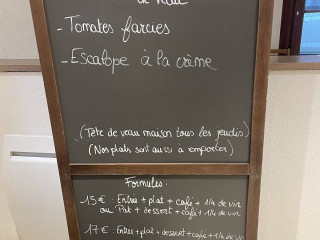 de veau
- Tomates farcies
- Escalope à la crème
(Tête de veau maison tous les jeudis)
(Nos plats sont aussi à emporter)
Formules :
15€ : Entrée + plat + café + 1/4 de vin
ou Plat + dessert + café + 1/4 de vin
17€ : Entrée + plat + dessert + café + 1/4 de vin